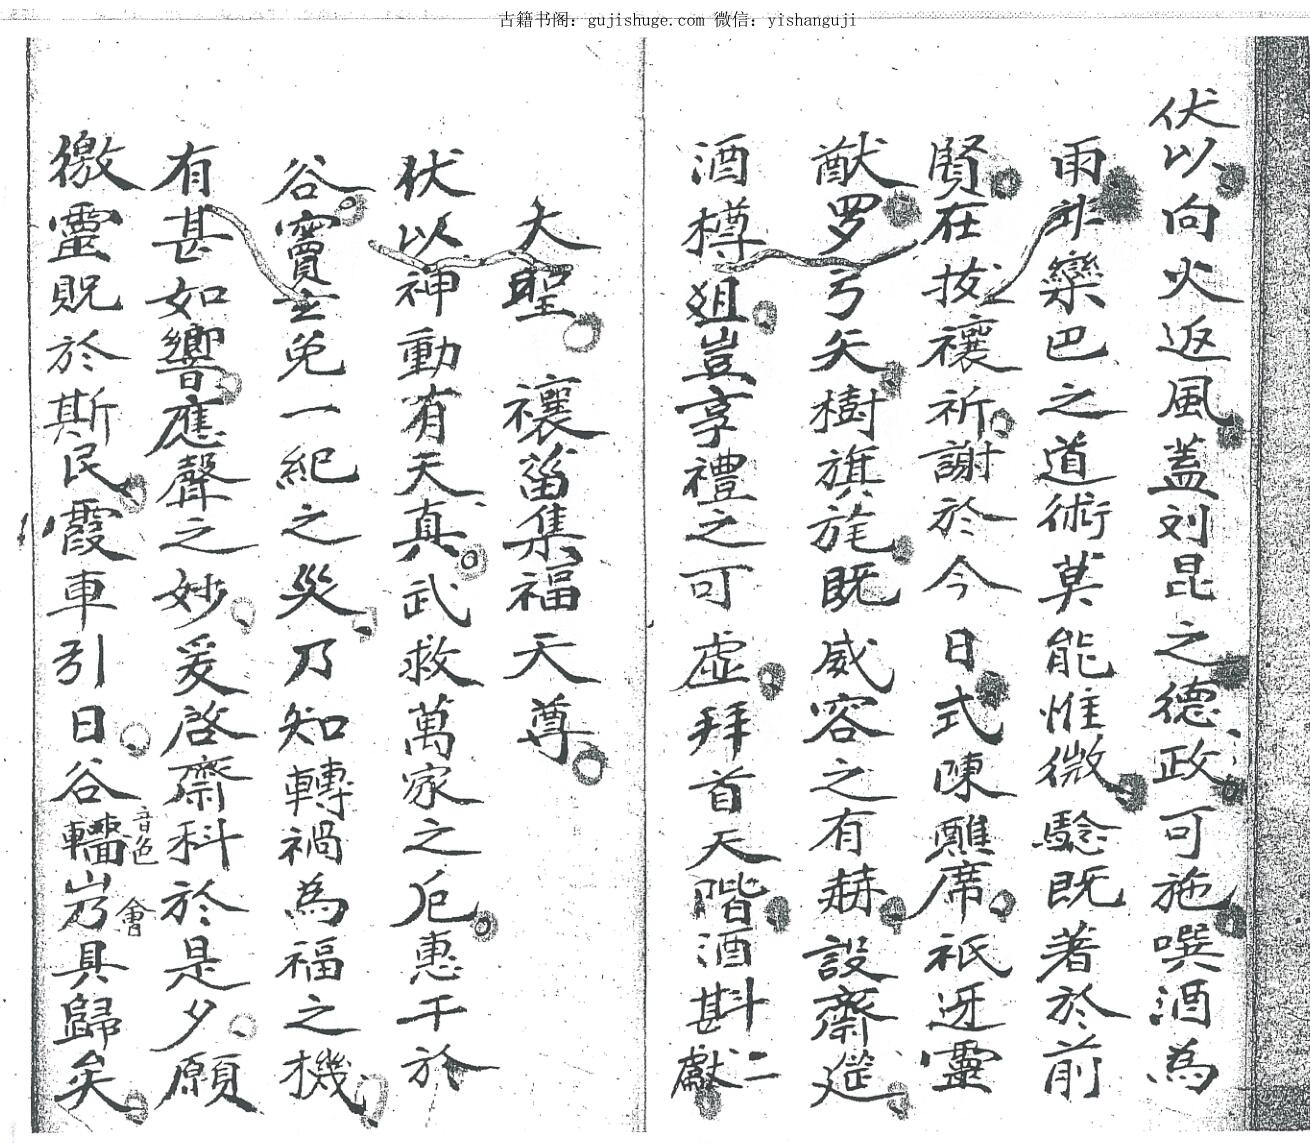 古籍书阁: gujishuge.com 微信: yishanguji
伏以向火返風蓋刘昆之德政可施噀酒為
雨非欒巴之道術莫能惟微騐既著於前
賢在拔禳祈謝於今日式陳醮席衹迓靈
猷罗弓矢樹旗旄既威容之有赫設齋筵
酒樽俎豈享禮之可虛拜首天階酒斟二獻
大聖 禳菑集福天尊
伏以神動有天真武救萬家之厄惠干於
谷竇圭免一紀之災乃知轉禍為福之機
有甚如響應聲之妙爰啓齋科於是夕願
徼靈貺於斯民霞車引日谷轖音色岃會具歸矣